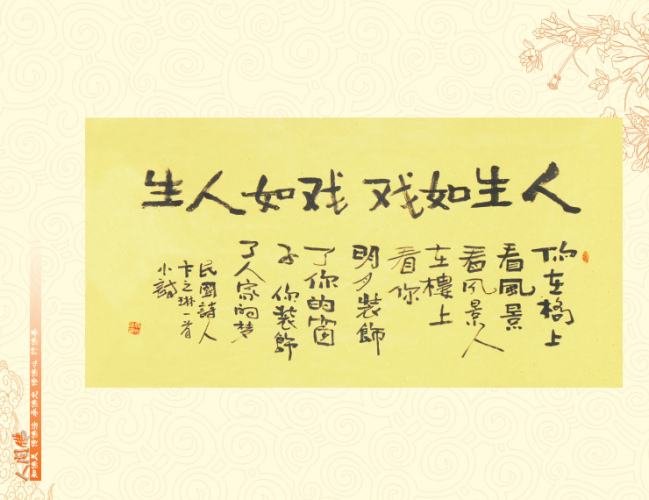 人生如戏 戏如人生
你在橋上
看風景
看风景人
在樓上
看你
明月装飾
了你的窗
子 你装飾
了人家的梦
民國詩人
卞之琳一首
小詩